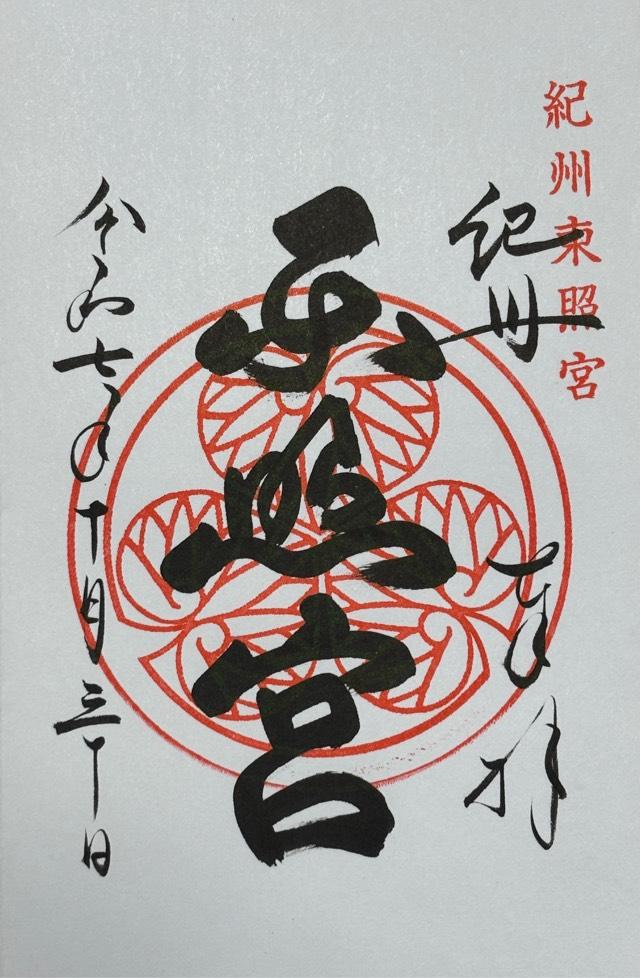 紀州東照宮
紀州
奉拝
東照宮
令和七年十月三十日